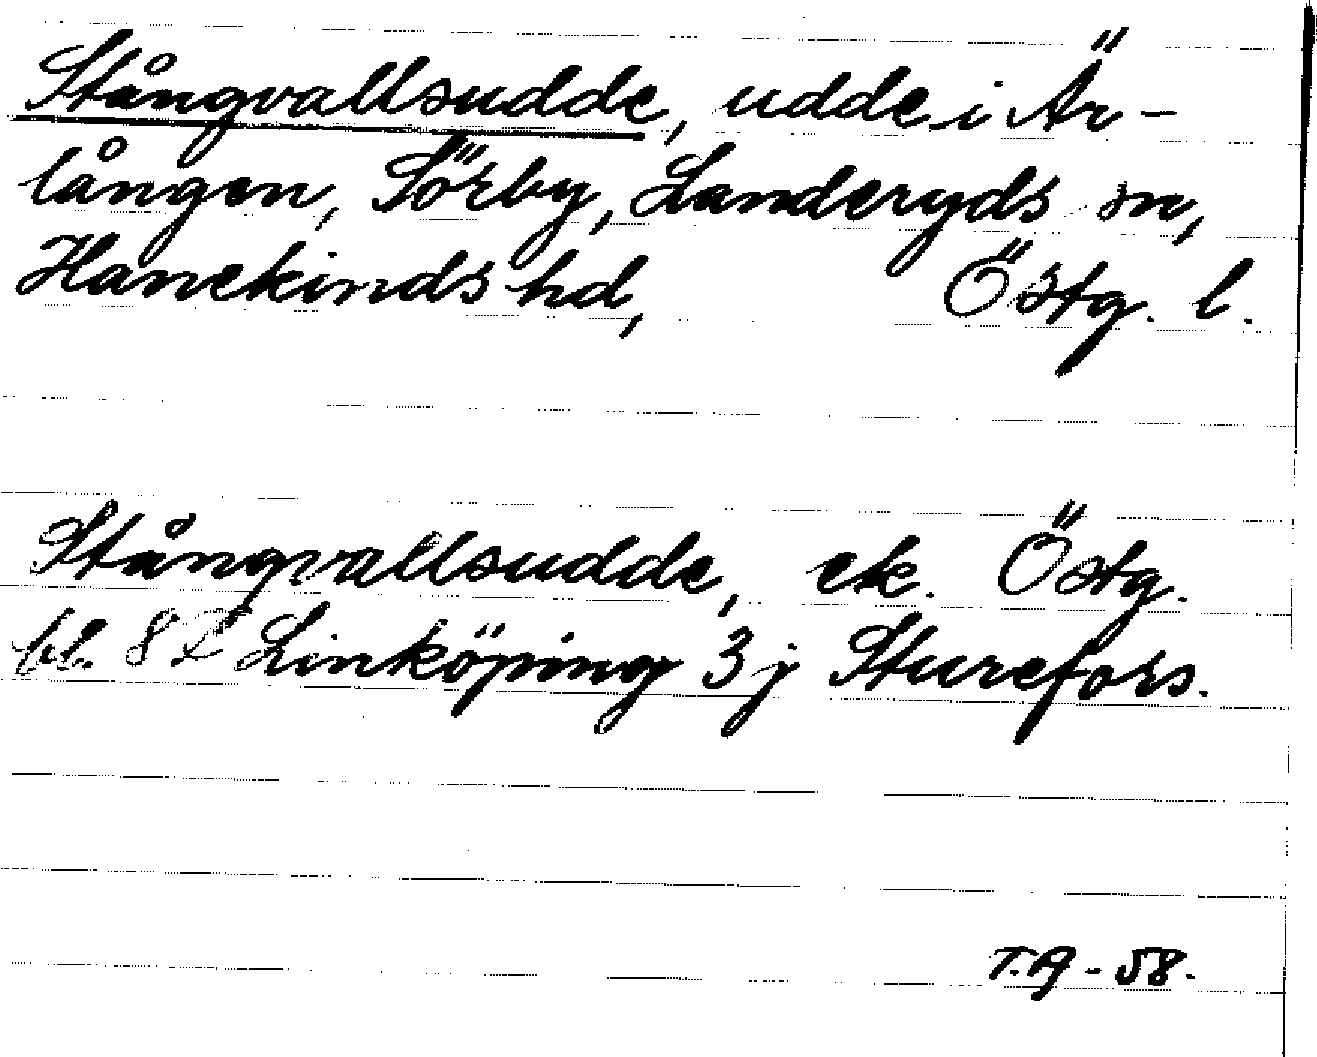 Stångvallsudde, udde i Är-
lången, Sörby, Landeryds sn,
Hanekinds hd, Östg. l.
Stångvallsudde, ek. Östg.
bl. 8 Linköping 3j Sturefors.
T.A - 58.